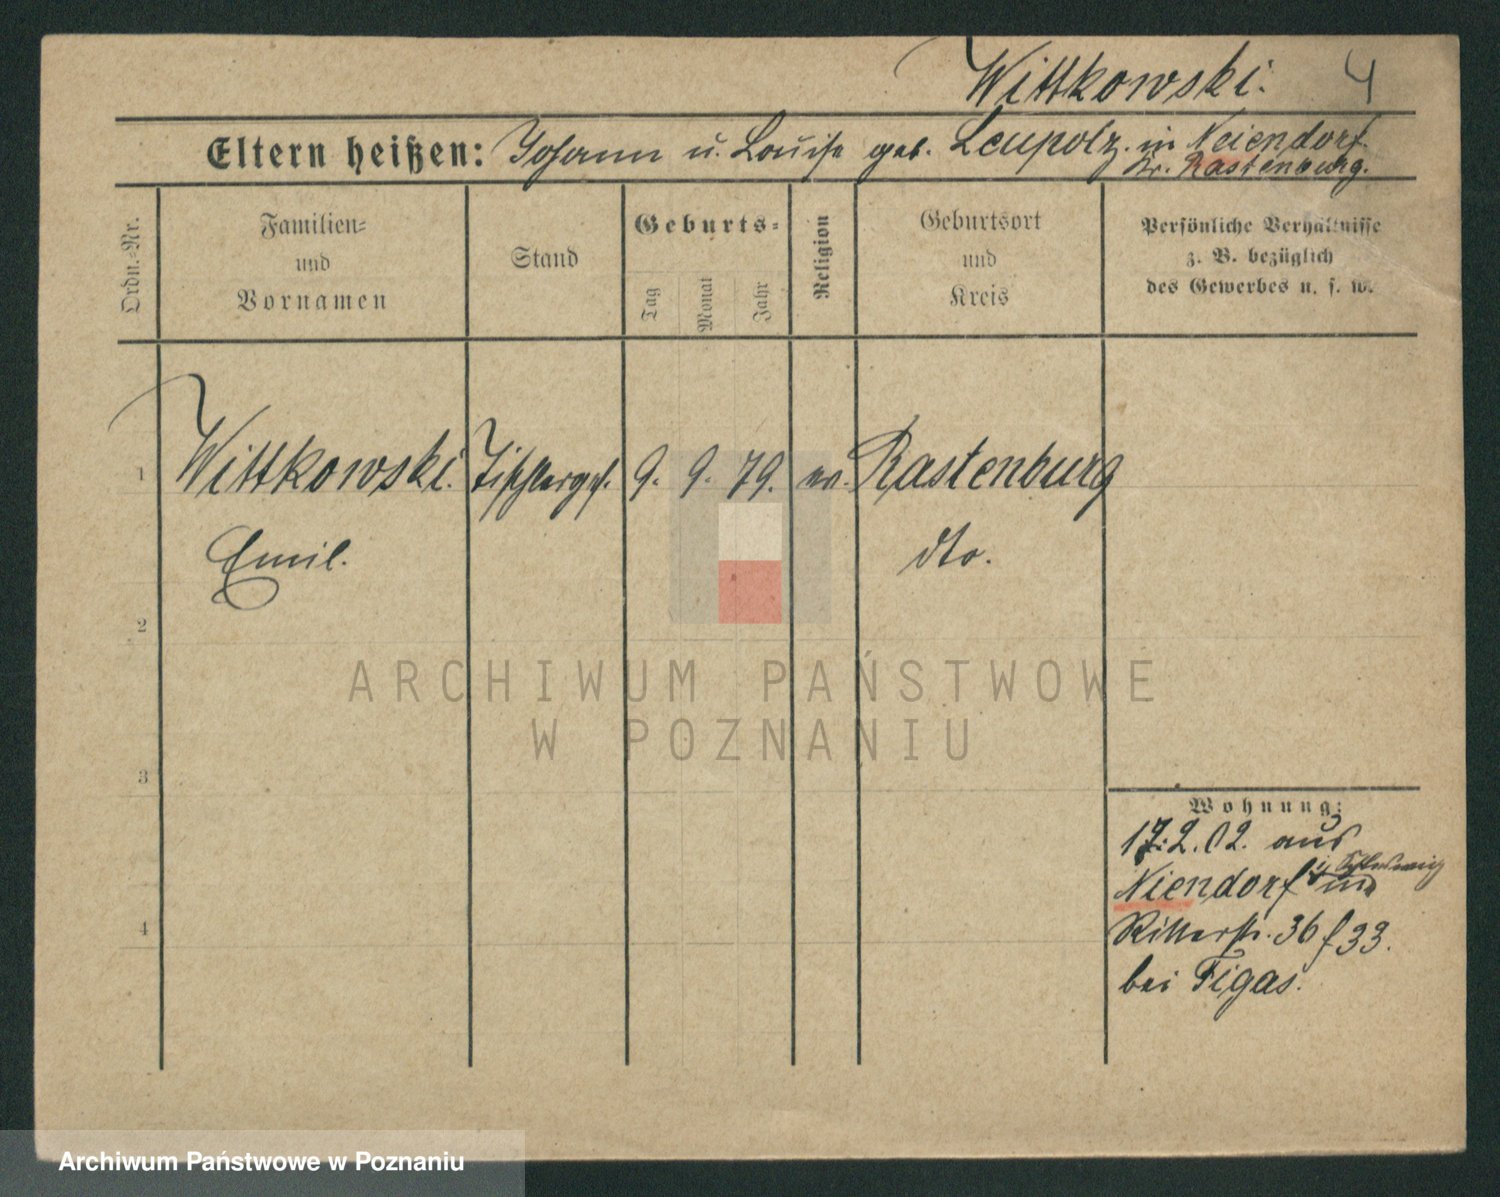 Wittkowski. 4
Eltern heißen: Johann u. Louise geb. Leupolz. in Neiendorf.
Kr. Rastenburg.
Ordn.-Nr.
Familien-
und
Vornamen
Stand
Geburts-
Tag
Monat
Jahr
Religion
Geburtsort
und
Kreis
Persönliche Verhältnisse
z. B. bezüglich
des Gewerbes u. s. w.
1 Wittkowski. Tischlerges. 9. 9. 79. ev. Rastenburg
Emil. dto.
2
ARCHIWUM PAŃSTWOWE
W POZNANIU
3
Wohnung:
17.2.02. aus
Niendorf i/ Schleswig
4
Ritterstr. 36 f 33.
bei Figas.
Archiwum Państwowe w Poznaniu